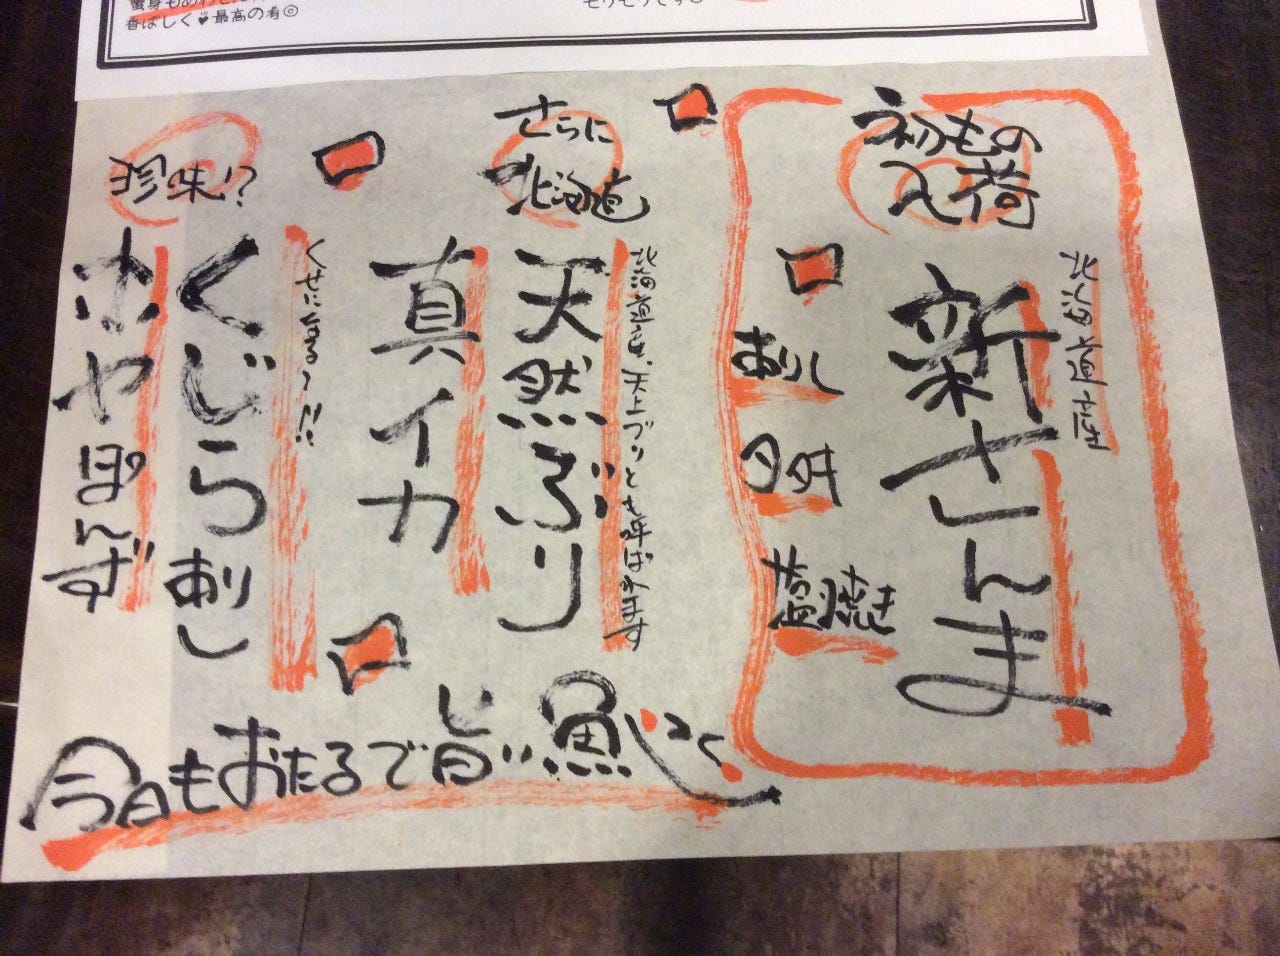 香ばしく♥最高の肴◎
初もの
入荷
北海道産
新さんま
刺し
タタキ
塩焼き
さらに
北海道
北海道産、天上ブリとも呼ばれます
天然ぶり
真イカ
珍味!?
くせになる〜!!
くじら刺し
ホヤぽんず
今日もおたるで旨い魚